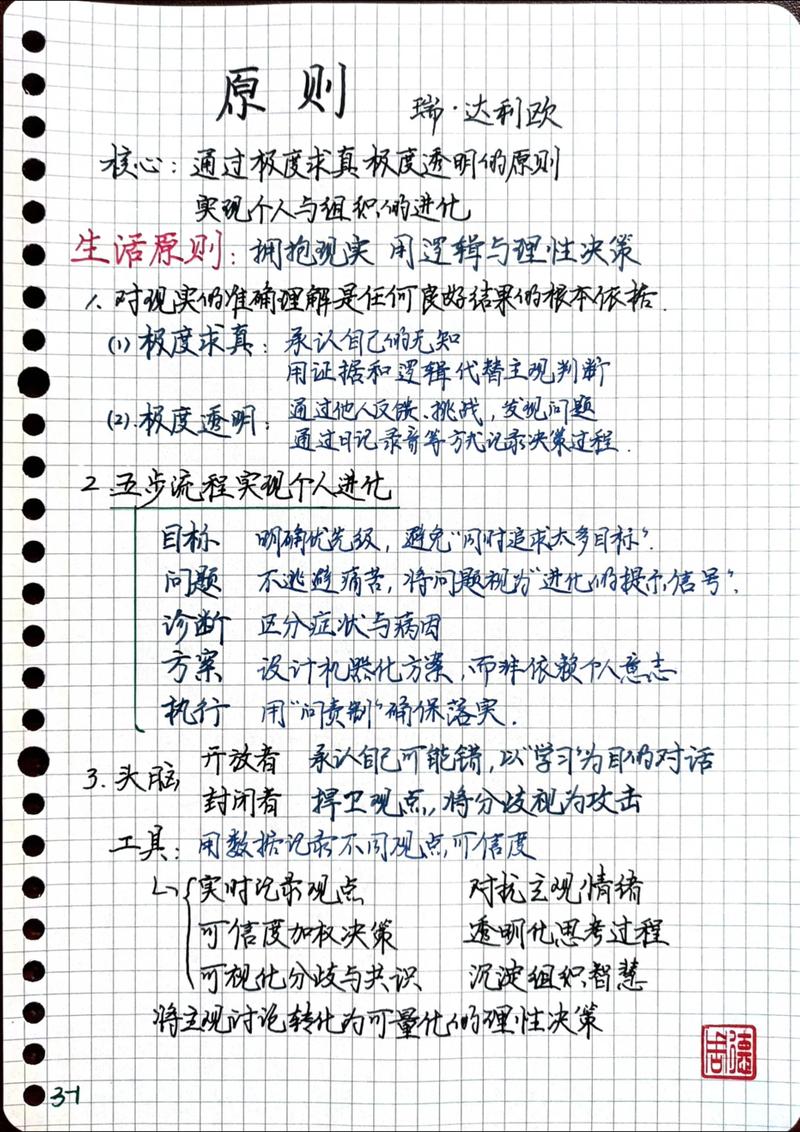 原则
瑞·达利欧
核心：通过极度求真极度透明的原则
实现个人与组织的进化
生活原则：拥抱现实 用逻辑与理性决策
1. 对现实的准确理解是任何良好结果的根本依据.
(1) 极度求真：承认自己的无知
用证据和逻辑代替主观判断
(2). 极度透明：通过他人反馈、挑战，发现问题
通过日记录音等方式记录决策过程.
2. 五步流程实现个人进化
目标 明确优先级，避免“同时追求太多目标”.
问题 不逃避痛苦，将问题视为“进化的提示信号”.
诊断 区分症状与病因
方案 设计机器化方案，而非依赖个人意志
执行 用“问责制”确保落实.
3. 头脑 开放者 承认自己可能错，以“学习”为目的对话
封闭者 捍卫观点，将分歧视为攻击
工具：用数据记录不同观点可信度
实时记录观点 对抗主观情绪
可信度加权决策 透明化思考过程
可视化分歧与共识 沉淀组织智慧
将主观讨论转化为可量化的理性决策
3-1